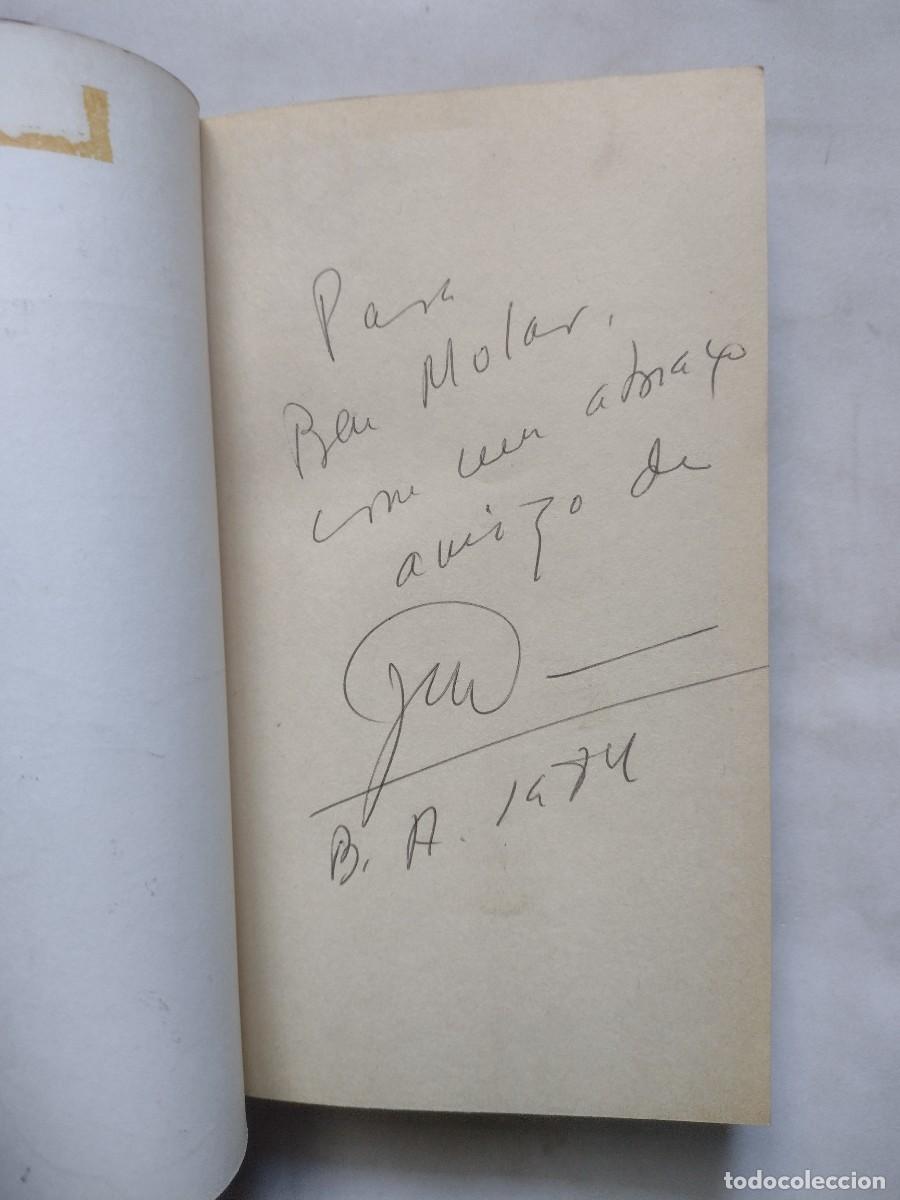 Para
Ben Molar,
con un abrazo
amigo de
B. A. 1974
todocoleccion